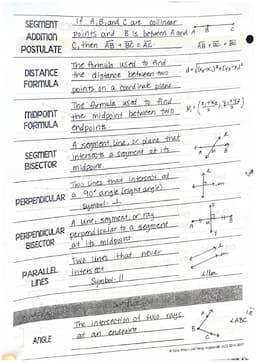 SEGMENT ADDITION POSTULATE
If A, B, and C are collinear
points and B is between A and
C, then AB + BC = AC
A B C
AB + BC = AC
DISTANCE FORMULA
The formula used to find
the distance between two
points on a coordinate plane.
MIDPOINT FORMULA
The formula used to find
the midpoint between two
endpoints.
SEGMENT BISECTOR
A segment, line, or plane that
intersects a segment at its
midpoint.
PERPENDICULAR
Two lines that intersect at
a 90° angle (right angle).
Symbol: ⊥
PERPENDICULAR BISECTOR
A line, segment, or ray
perpendicular to a segment
at its midpoint
PARALLEL LINES
Two lines that never
intersect
Symbol: ||
ANGLE
The intersection of two rays
at an endpoint.
A
B
C
∠ABC